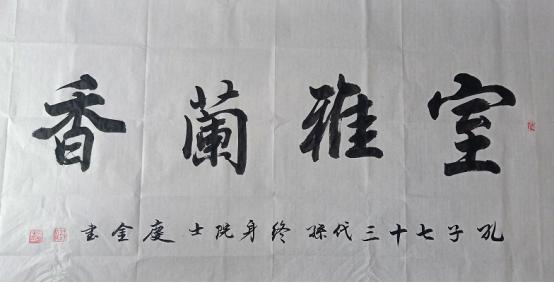 室雅蘭香
孔子七十三代孫终身院士慶金书